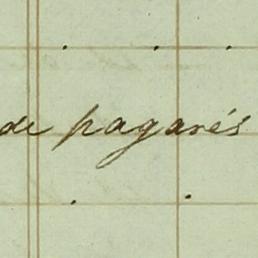 de pagarés